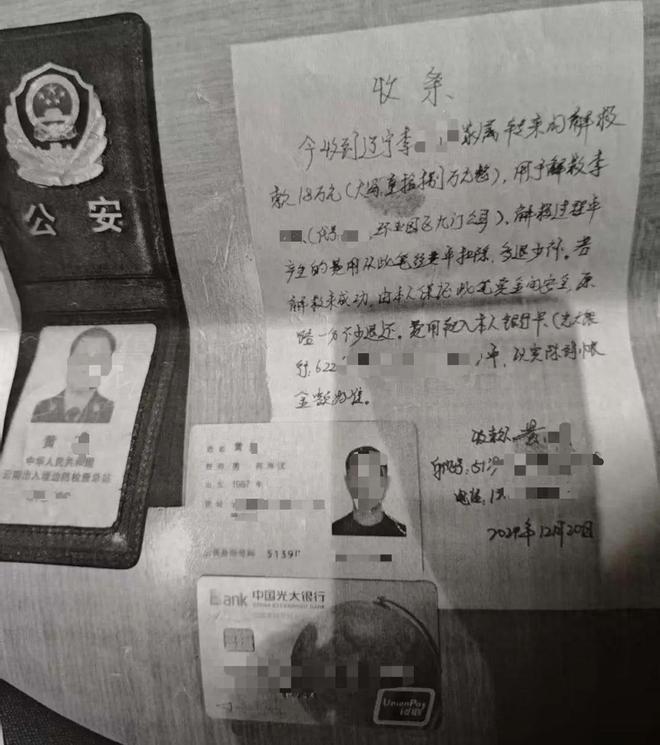 公安
黄
中华人民共和国
云南出入境边防检查总站
收条
今收到辽宁李 家属转来的解救
款18万元(大写:壹拾捌万元整),用于解救李
(代号 ,环亚园区龙门公司)。解救过程中
产生的费用从此笔经费中扣除,多退少补。若
解救未成功,由本人保证此笔资金的安全,原
路一分不少退还。费用转入本人银行卡(光大银
行:622 )中,以实际到账
金额为准。
收款人:黄
身份证号:5139
电话:1
2024年12月20日
姓名 黄
性别 男 民族 汉
出生 1987 年
住址
公民身份号码 51391
Bank 中国光大银行
CHINA EVERBRIGHT BANK
UnionPay
银联